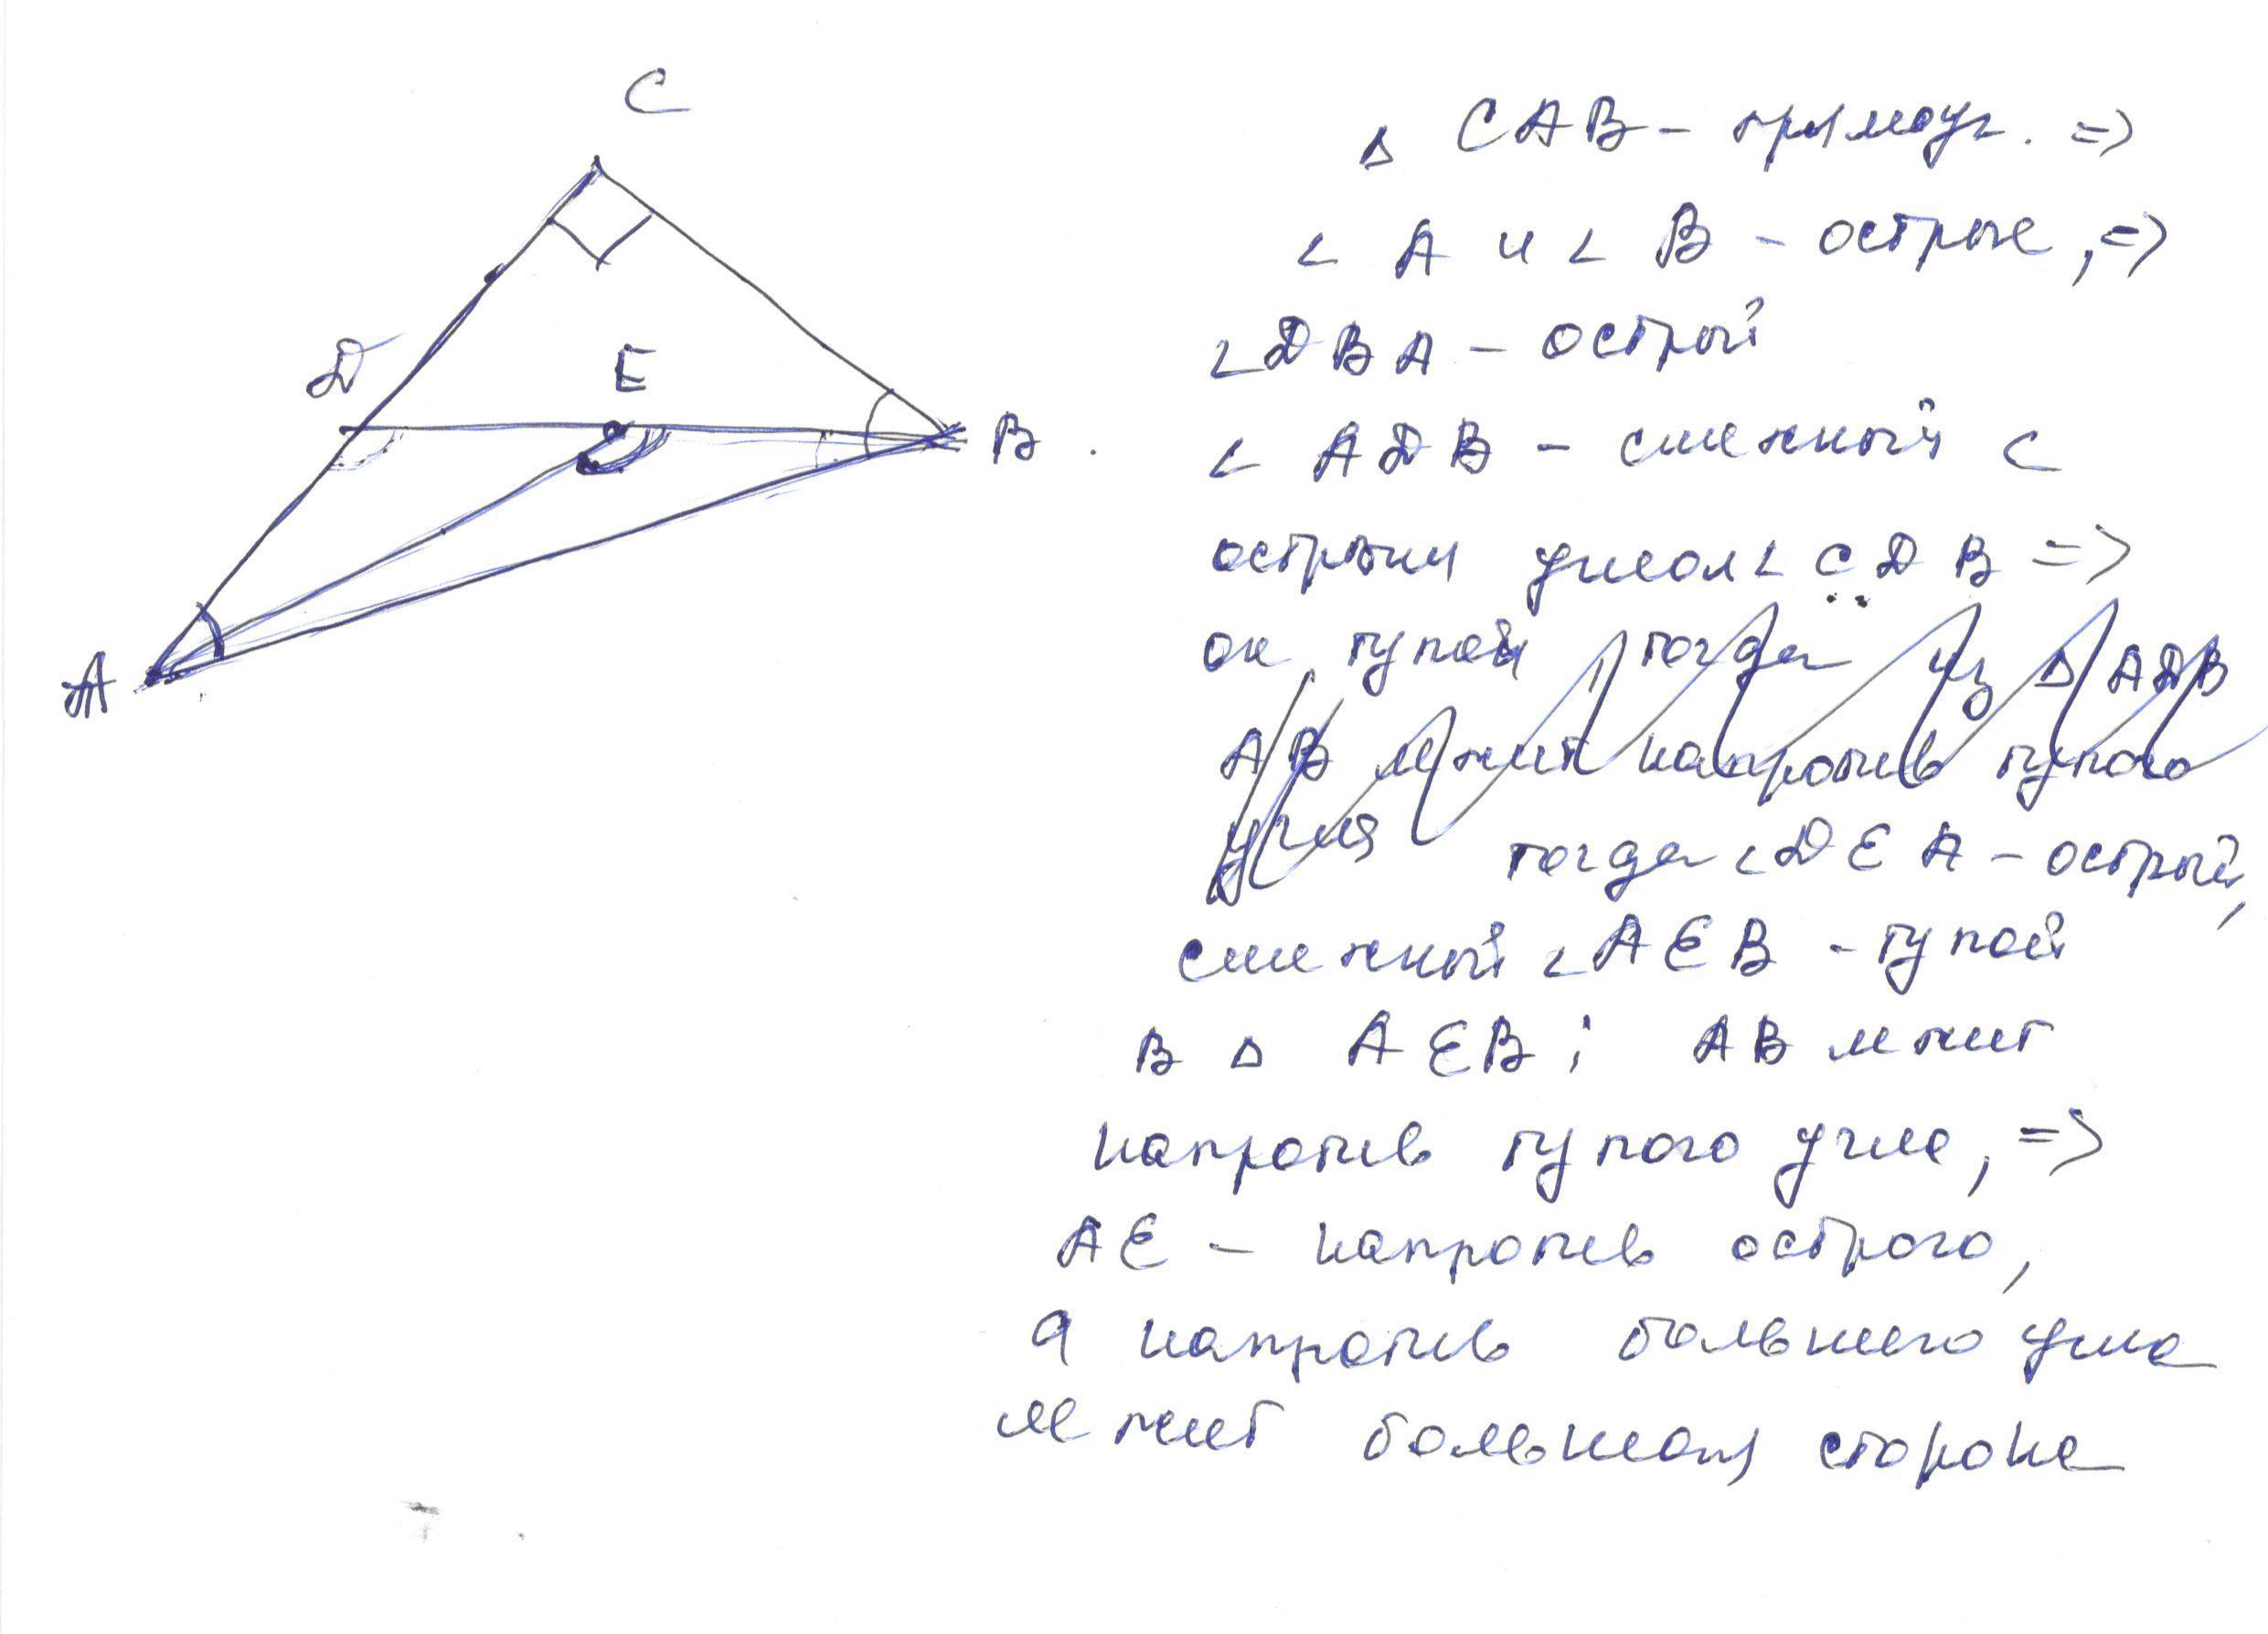 C
D
E
B.
A
Δ CAB - прямоуг. =>
∠ A и ∠ B - острые, =>
∠DBA - острый
∠ ADB - смежный с
острым углом ∠ CDB =>
он тупой, тогда из Δ ADB
AB лежит напротив тупого
угла тогда ∠DEA - острый,
смежный ∠AEB - тупой
В Δ AEB; AB лежит
напротив тупого угла, =>
AE - напротив острого,
а напротив большего угла
лежит большая сторона